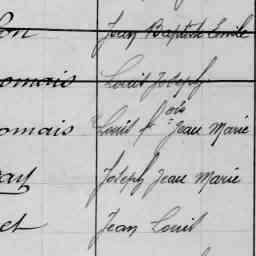 lon Jean Baptiste Emile
omais Louis Joseph
omais Louis fçois Jean Marie
ay Joseph Jean Marie
et Jean Louis